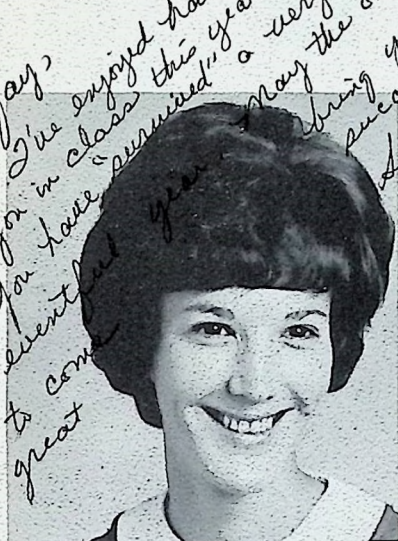 Jay,
I've enjoyed ha
you in class this yea
You have "survived" a very
eventful year. May the
to come bring y
great succ